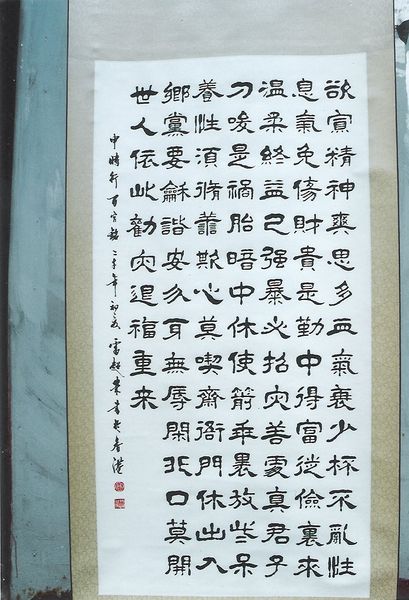 欲寡精神爽思多血氣衰少杯不亂性
息氣免傷財貴是勤中得富從儉裏來
温柔終益己强暴必招灾善處真君子
刁唆是禍胎暗中休使箭乖裏放些呆
養性須脩善欺心莫喫齋衙門休出入
鄉黨要龢諧安分身無辱閑非口莫開
世人依此勸灾退福重来
申時行百字銘二千年初夏雷書於香港